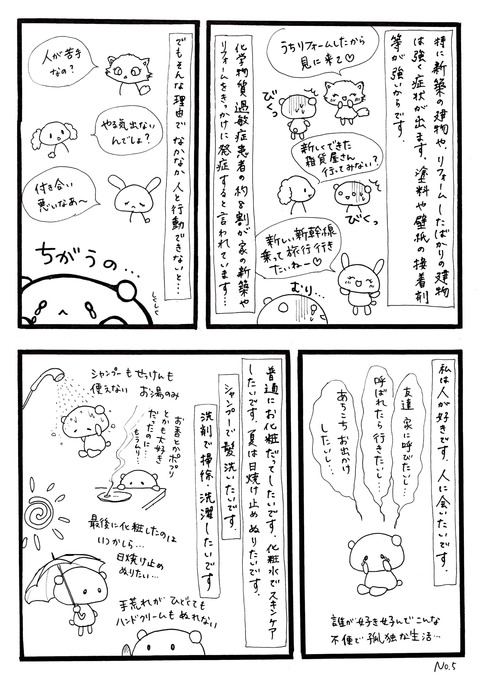 特に新築の建物や、リフォームしたばかりの建物
は強く症状が出ます。塗料や壁紙の接着剤
等が強いからです。
うちリフォームしたから
見に来て♡
びくっ
新しくできた
雑貨屋さん
行ってみない？
びくっ
新しい新幹線
乗って旅行行き
たいねー♡
むり…
化学物質過敏症患者の約8割が家の新築や
リフォームをきっかけに発症すると言われています…
でもそんな理由でなかなか人と行動できないと…
人が苦手
なの？
やる気出ない
んでしょ？
付き合い
悪いなあ〜
ちがうの…
しくしく
私は人が好きです。人に会いたいです。
友達 家に呼びたいし…
呼ばれたら行きたいし…
あちこちお出かけ
したいし…
誰が好き好んでこんな
不便で孤独な生活…
普通にお化粧だってしたいです。化粧水でスキンケア
したいです。夏は日焼け止めぬりたいです。
シャンプーで髪洗いたいです。
洗剤で掃除・洗濯したいです
シャンプーもせっけんも
使えない お湯のみ
お香とかポプリ
とかも大好き
だったのに…
もうムリ…
最後に化粧したのは
いつかしら…
日焼け止め
ぬりたい…
手荒れがひどくても
ハンドクリームもぬれない
No.5